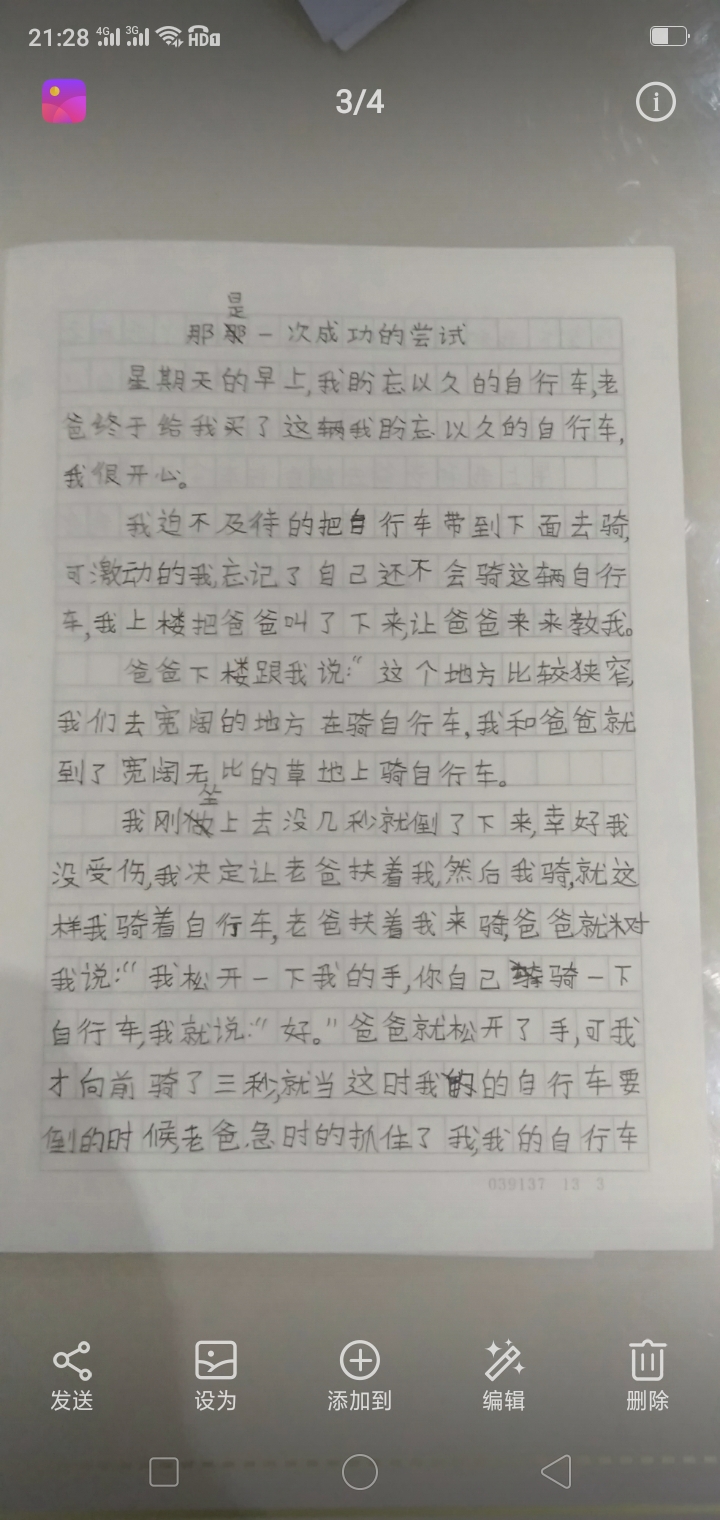 21:28 4G 3G HD1
3/4
那是一次成功的尝试
星期天的早上,我盼忘以久的自行车,老
爸终于给我买了这辆我盼忘以久的自行车,
我很开心。
我迫不及待的把自行车带到下面去骑,
可激动的我忘记了自己还不会骑这辆自行
车,我上楼把爸爸叫了下来,让爸爸来来教我。
爸爸下楼跟我说:“这个地方比较狭窄,
我们去宽阔的地方在骑自行车,我和爸爸就
到了宽阔无比的草地上骑自行车。
我刚坐上去没几秒就倒了下来,幸好我
没受伤,我决定让老爸扶着我,然后我骑,就这
样我骑着自行车,老爸扶着我来骑,爸爸就对
我说:“我松开一下我的手,你自己骑一下
自行车,我就说:“好。”爸爸就松开了手,可我
才向前骑了三秒,就当这时我的自行车要
倒的时候,老爸急时的抓住了我,我的自行车
039137 13 3
发送 设为 添加到 编辑 删除